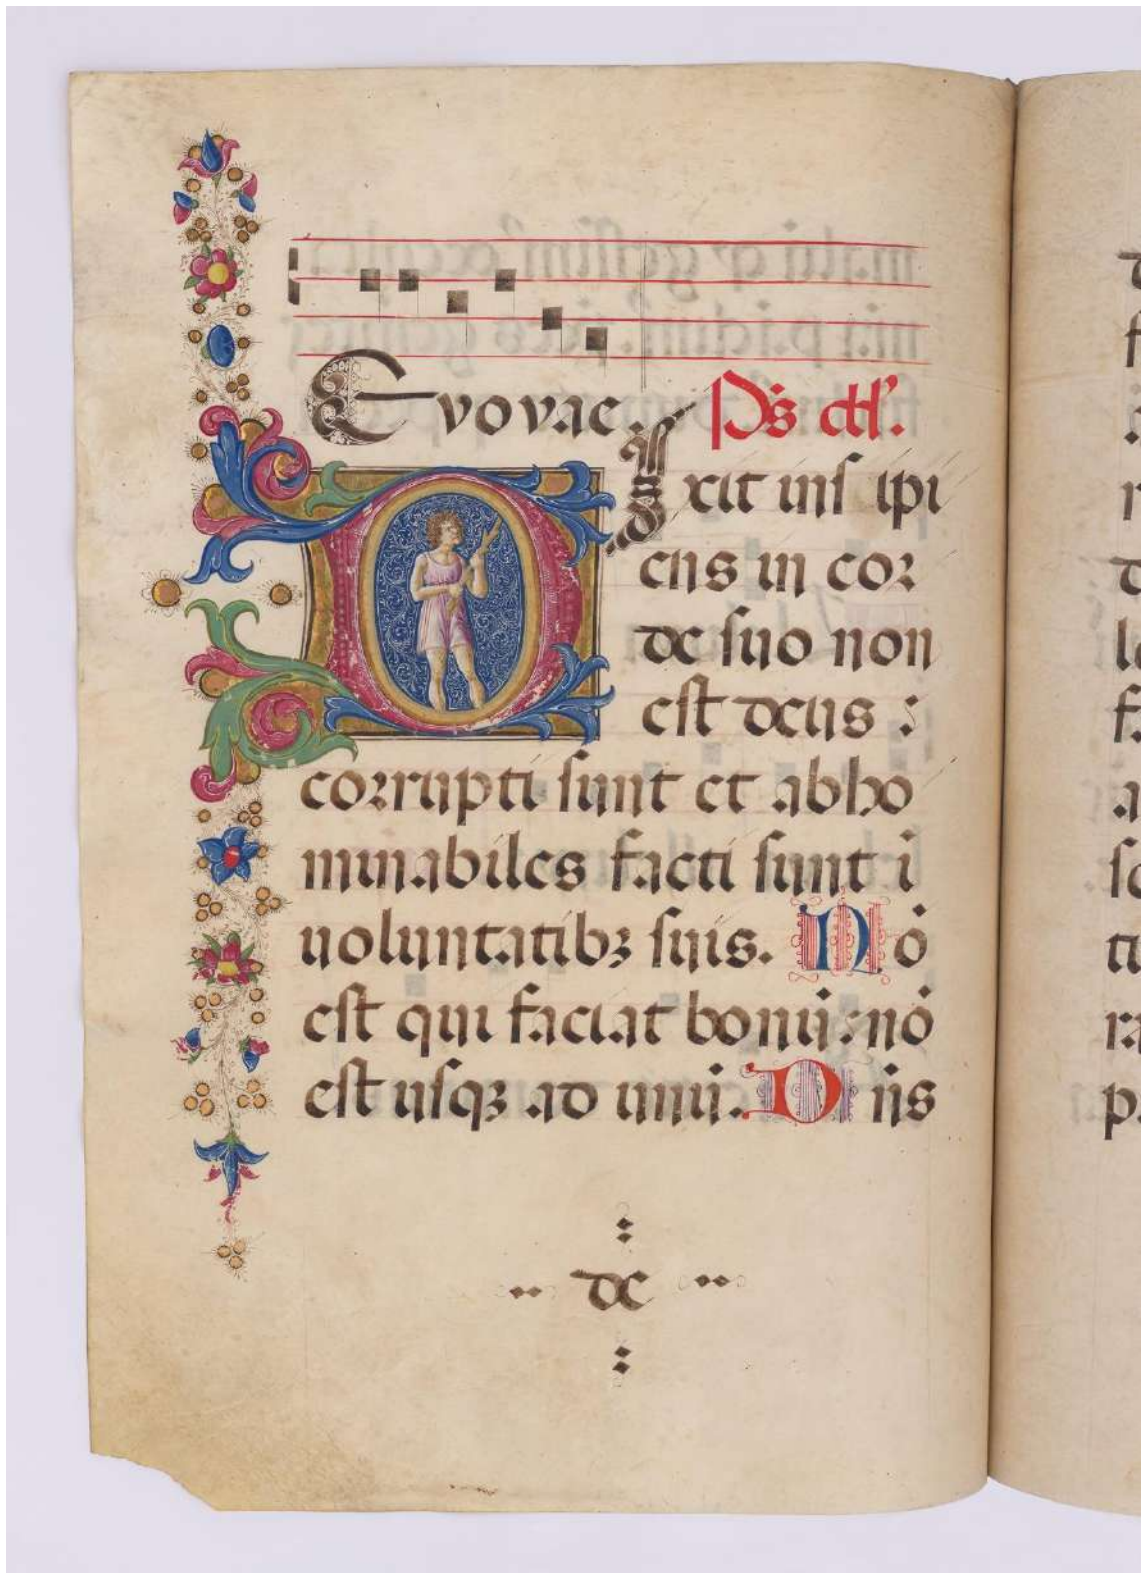 Evovae. Ps dd'.
Dixit insipi
ens in cor
de suo non
est deus :
corrupti sunt et abho
minabiles facti sunt ī
uoluntatibꝫ suis. Nō
est qui faciat bonū : nō
est usqꝫ ad unū. Dn̄s
de